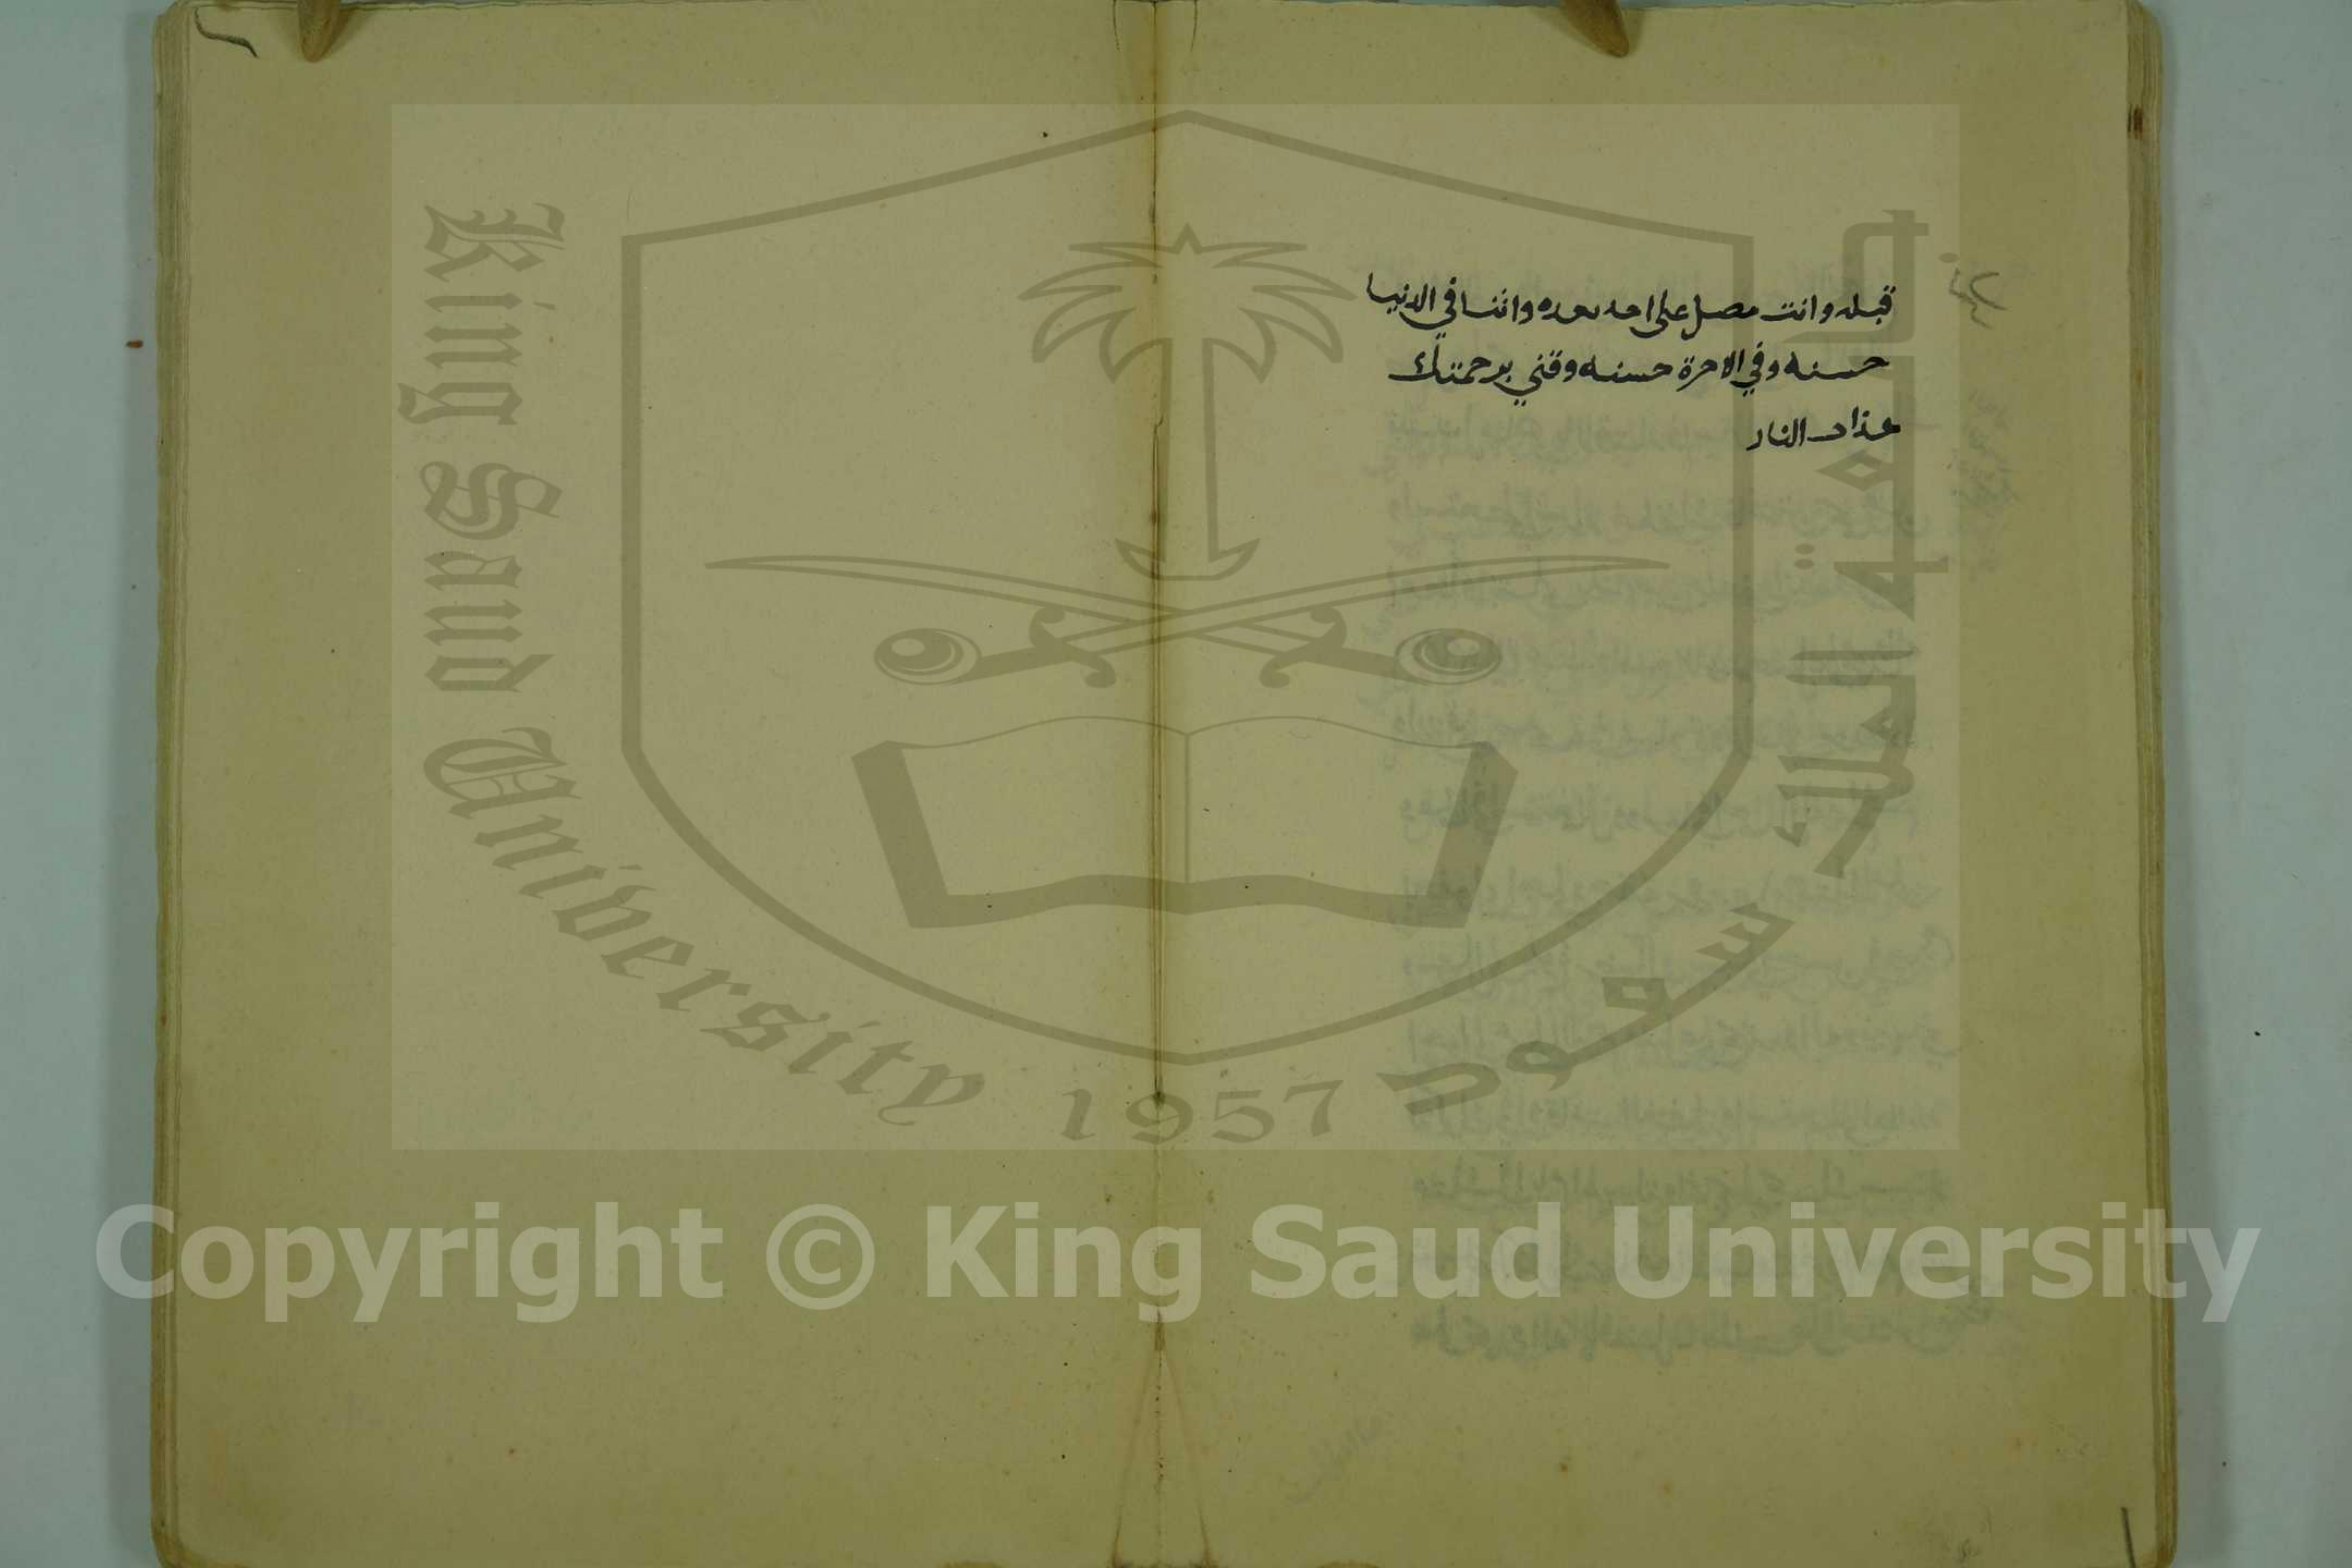 قبله وانت مصل على احد بعده واتنا في الدنيا
حسنه وفي الاخرة حسنه وقني برحمتك
عذاب النار
جامعة الملك سعود
King Saud University
1957
Copyright © King Saud University